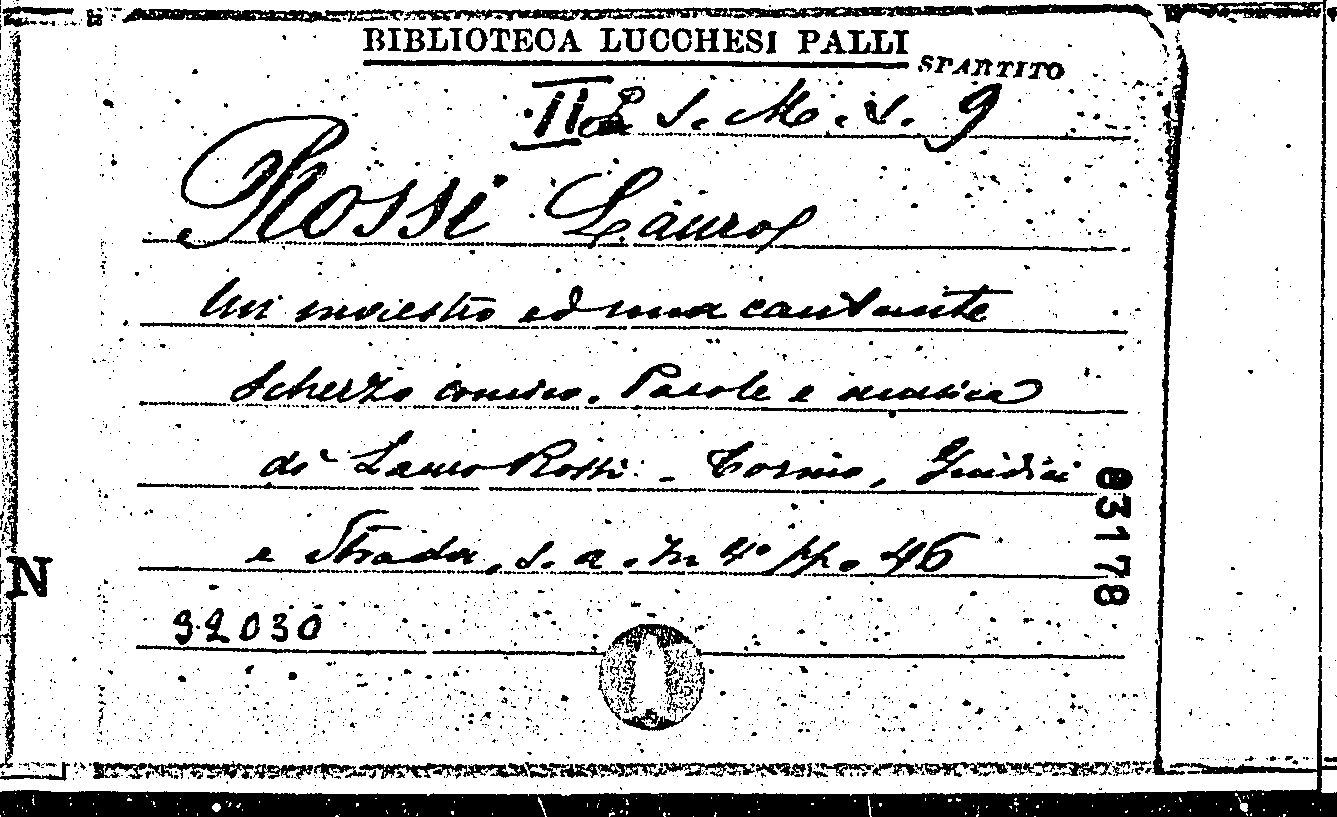 BIBLIOTECA LUCCHESI PALLI
SPARTITO
S. M. s. 9
Rossi Lauro
Un maestro ed una cantante
Scherzo comico. Parole e musica
di Lauro Rossi. - Torino, Giudici
e Strada, s. a. In 4° pp. 46
32030
83178
N